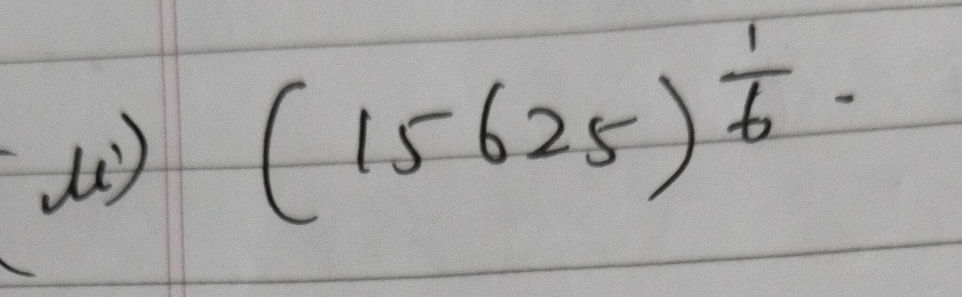 iii) (15625)^{1/6} .